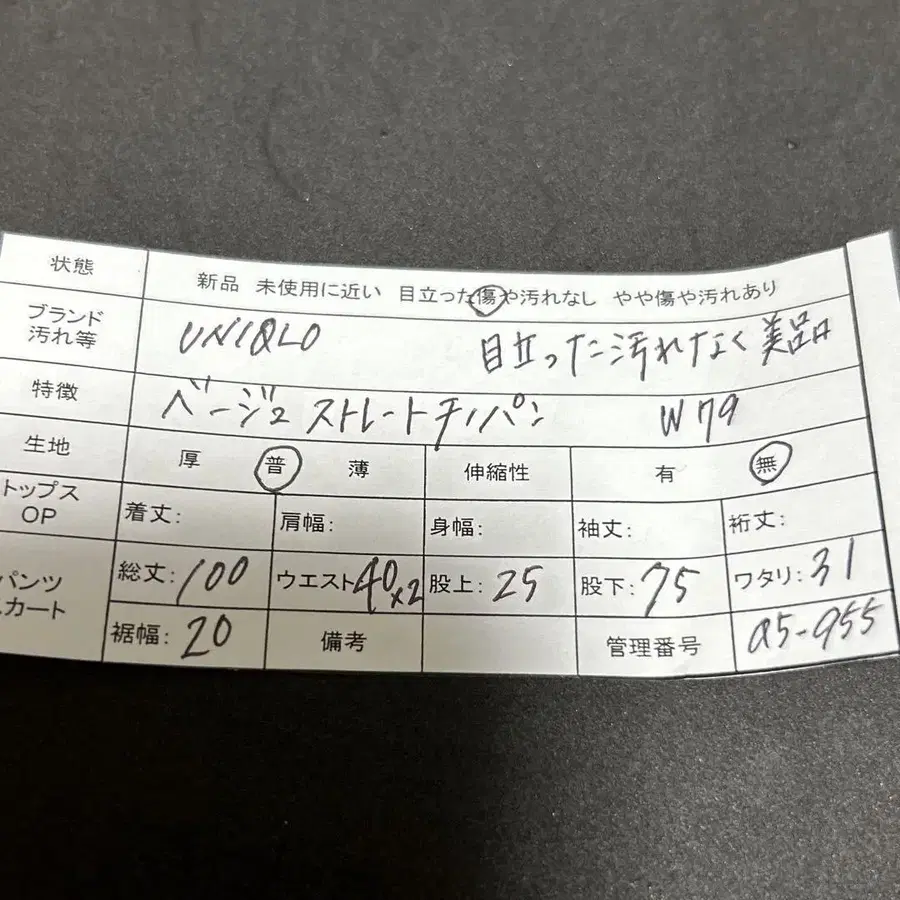 状態 新品 未使用に近い 目立った傷や汚れなし やや傷や汚れあり
ブランド 汚れ等 UNIQLO 目立った汚れなく美品
特徴 ベージュ ストレートチノパン W79
生地 厚 普 薄 伸縮性 有 無
トップス OP 着丈: 肩幅: 身幅: 袖丈: 裄丈:
パンツ スカート 総丈:100 ウエスト40×2 股上:25 股下:75 ワタリ:31
裾幅:20 備考 管理番号 a5-955